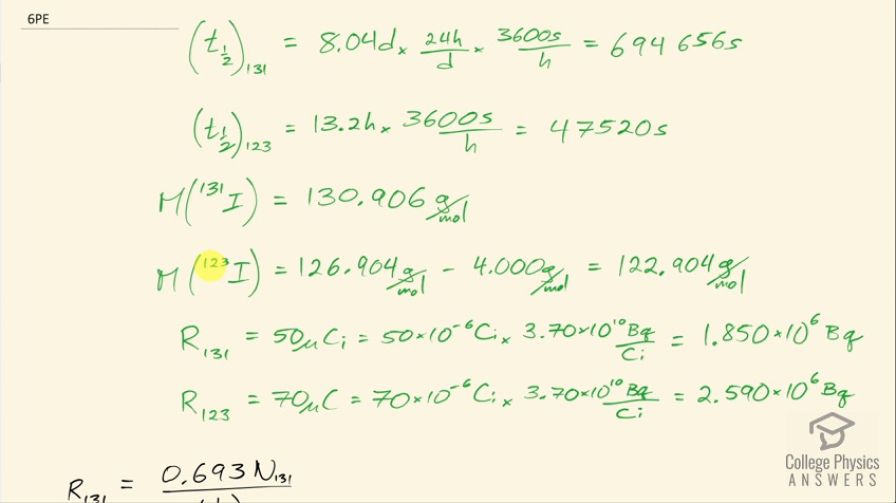 6PE
(t½)₁₃₁ = 8.04d × 24h/d × 3600s/h = 694 656s
(t½)₁₂₃ = 13.2h × 3600s/h = 47520s
M(¹³¹I) = 130.906 g/mol
M(¹²³I) = 126.904 g/mol - 4.000 g/mol = 122.904 g/mol
R₁₃₁ = 50μCi = 50×10⁻⁶Ci × 3.70×10¹⁰Bq/Ci = 1.850×10⁶ Bq
R₁₂₃ = 70μC = 70×10⁻⁶Ci × 3.70×10¹⁰Bq/Ci = 2.590×10⁶ Bq
R₁₃₁ = 0.693 N₁₃₁
College Physics
ANSWERS